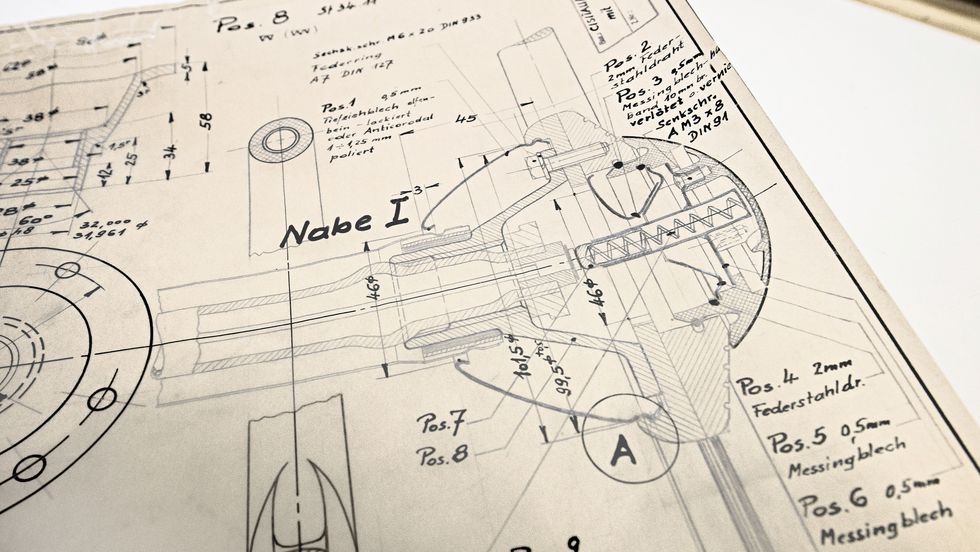 Pos. 8
St 34 11
W (W)
Sechsk. schr. M6 x 20 DIN 933
Federring
A7 DIN 127
mit
Pos. 2
2mm Feder-
stahldraht
Pos. 3 0,5mm
Messingblech-
band, 10mm br.
verlötet o.
Senkschr.
AM3 x 8
DIN 91
Pos. 1 0,5 mm
Tiefziehblech elfen-
bein - lackiert
oder Anticorodal
1 ÷ 1,25 mm
poliert
58
34
25
12
38
25
60°
48
32,000 ø
31,961 ø
45
3
Nabe I
46ø
46ø
101,5ø
99,5ø
Pos. 7
Pos. 8
A
Pos. 4 2mm
Federstahldr.
Pos. 5 0,5mm
Messingblech
Pos. 6 0,5mm
Messingblech
Pos. 9